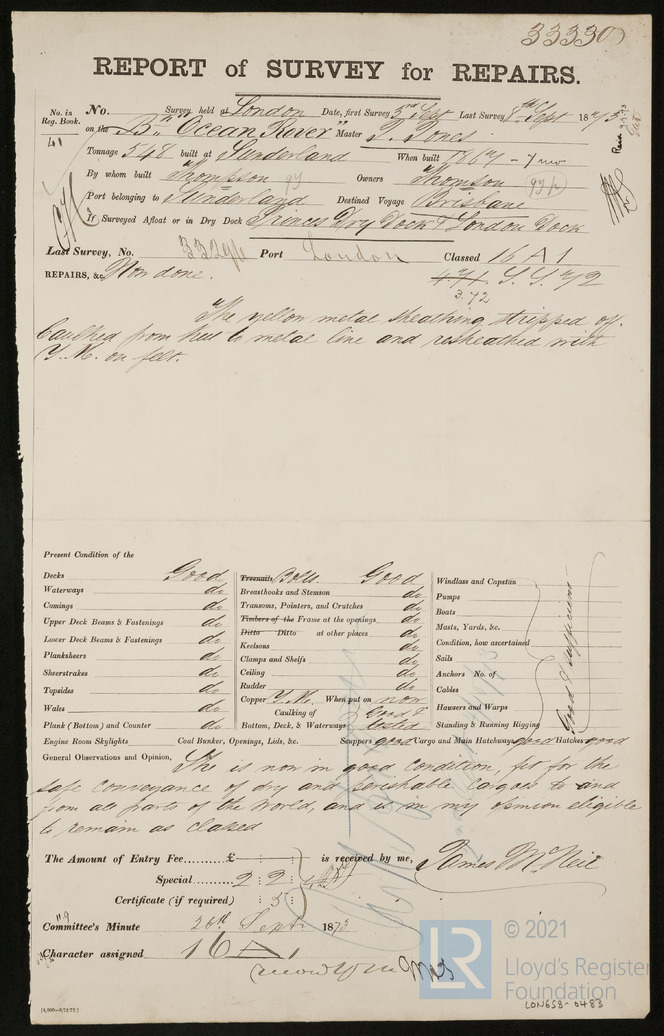 33330
REPORT of SURVEY for REPAIRS.
No. in Reg. Book.
41
No. Survey held at London Date, first Survey 3rd Sept Last Survey 8th Sept 1873
on the Bn "Ocean Rover" Master D. Jones
Tonnage 548 built at Sunderland When built 1867 - 7 mo
By whom built Thompson Owners Thomson
Port belonging to Sunderland Destined Voyage Brisbane
If Surveyed Afloat or in Dry Dock Princes Dry Dock & London Dock
Last Survey, No. Port London Classed 16 A 1
REPAIRS, &c. Now done. S.S. 72
3.72
The yellow metal sheathing stripped off.
Caulked from keel to metal line and resheathed with
Y.M. on felt.
Present Condition of the
Decks Good
Waterways do
Comings do
Upper Deck Beams & Fastenings do
Lower Deck Beams & Fastenings do
Planksheers do
Sheerstrakes do
Topsides do
Wales do
Plank (Bottom) and Counter do
Treenails Bolts. Good
Breasthooks and Stemson do
Transoms, Pointers, and Crutches do
Timbers of the Frame at the openings do
Ditto Ditto at other places do
Keelsons do
Clamps and Shelfs do
Ceiling do
Rudder do
Copper Y.M. When put on now
Caulking of Bottom, Deck, & Waterways Good & tested
Windlass and Capstan
Pumps
Boats
Masts, Yards, &c.
Condition, how ascertained
Sails
Anchors No. of
Cables
Hawsers and Warps
Standing & Running Rigging
Good & sufficient
Engine Room Skylights Coal Bunker, Openings, Lids, &c. Scuppers good Cargo and Main Hatchways good Hatches good
General Observations and Opinion, She is now in good condition, fit for the
safe conveyance of dry and perishable cargoes to and
from all parts of the World, and is in my opinion eligible
to remain as classed
The Amount of Entry Fee......... £ is received by me, James McNeil
Special......... 2 : 2 :
Certificate (if required) : 5 :
Committee's Minute 26th Sept. 1873
Character assigned 16 A 1
LR
© 2021
Lloyd's Register
Foundation
LON658-0483